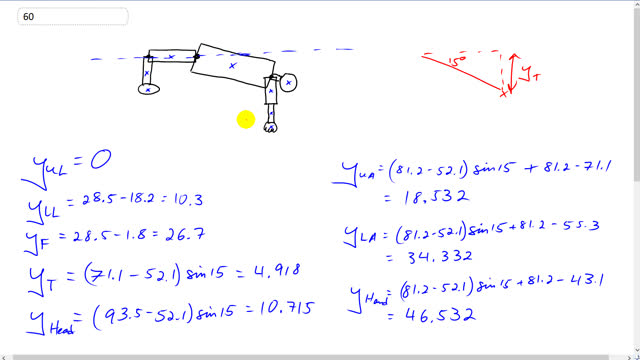 60
15°
y_T
y_UL = 0
y_LL = 28.5 - 18.2 = 10.3
y_F = 28.5 - 1.8 = 26.7
y_T = (71.1 - 52.1) sin15 = 4.918
y_Head = (93.5 - 52.1) sin15 = 10.715
y_UA = (81.2 - 52.1) sin15 + 81.2 - 71.1
= 18.532
y_LA = (81.2 - 52.1) sin15 + 81.2 - 55.3
= 34.332
y_Hand = (81.2 - 52.1) sin15 + 81.2 - 43.1
= 46.532